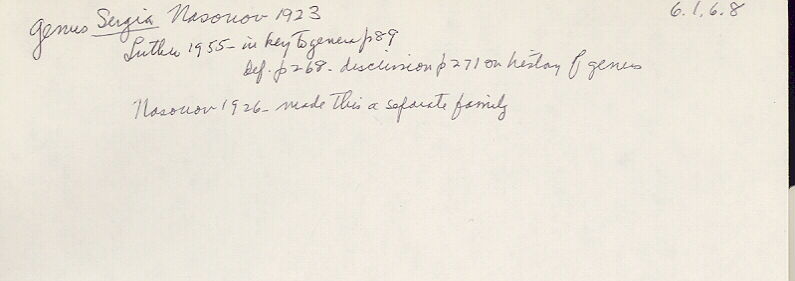 Genus Sergia Nasonov 1923 6.1.6.8
Luther 1955 - in key to genera p 89
Def. p 268 - discussion p 271 on history of genus
Nasonov 1926 - made this a separate family